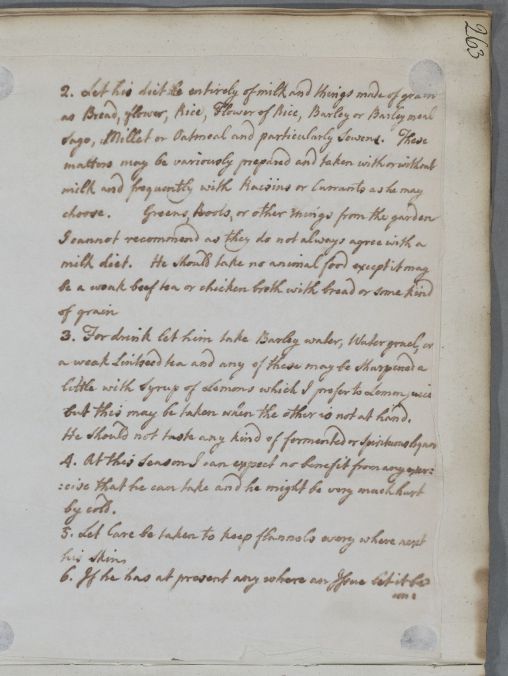 263
2. Let his diet be entirely of milk and things made of grain
as Bread, flower, Rice, Flower of Rice, Barley or Barley meal
Sago, Millet or Oatmeal and particularly Sowens. These
matters may be variously prepared and taken with or without
milk and frequently with Raisins or Currants as he may
choose. Greens, Roots, or other things from the garden
I cannot recommend as they do not always agree with a
milk diet. He should take no animal food except it may
be a weak beef tea or chicken broth with bread or some kind
of grain
3. For drink let him take Barley water, Water gruel, or
a weak Lintseed tea and any of these may be sharpened a
little with Syrup of Lemons which I prefer to Lemon juice
but this may be taken when the other is not at hand.
He should not taste any kind of fermented or Spirituous liquor
4. At this Season I can expect no benefit from any exer:
:cise that he can take and he might be very much hurt
by cold.
5. Let Care be taken to keep flannels every where next
his Skin
6. If he has at present any where an Issue let it be